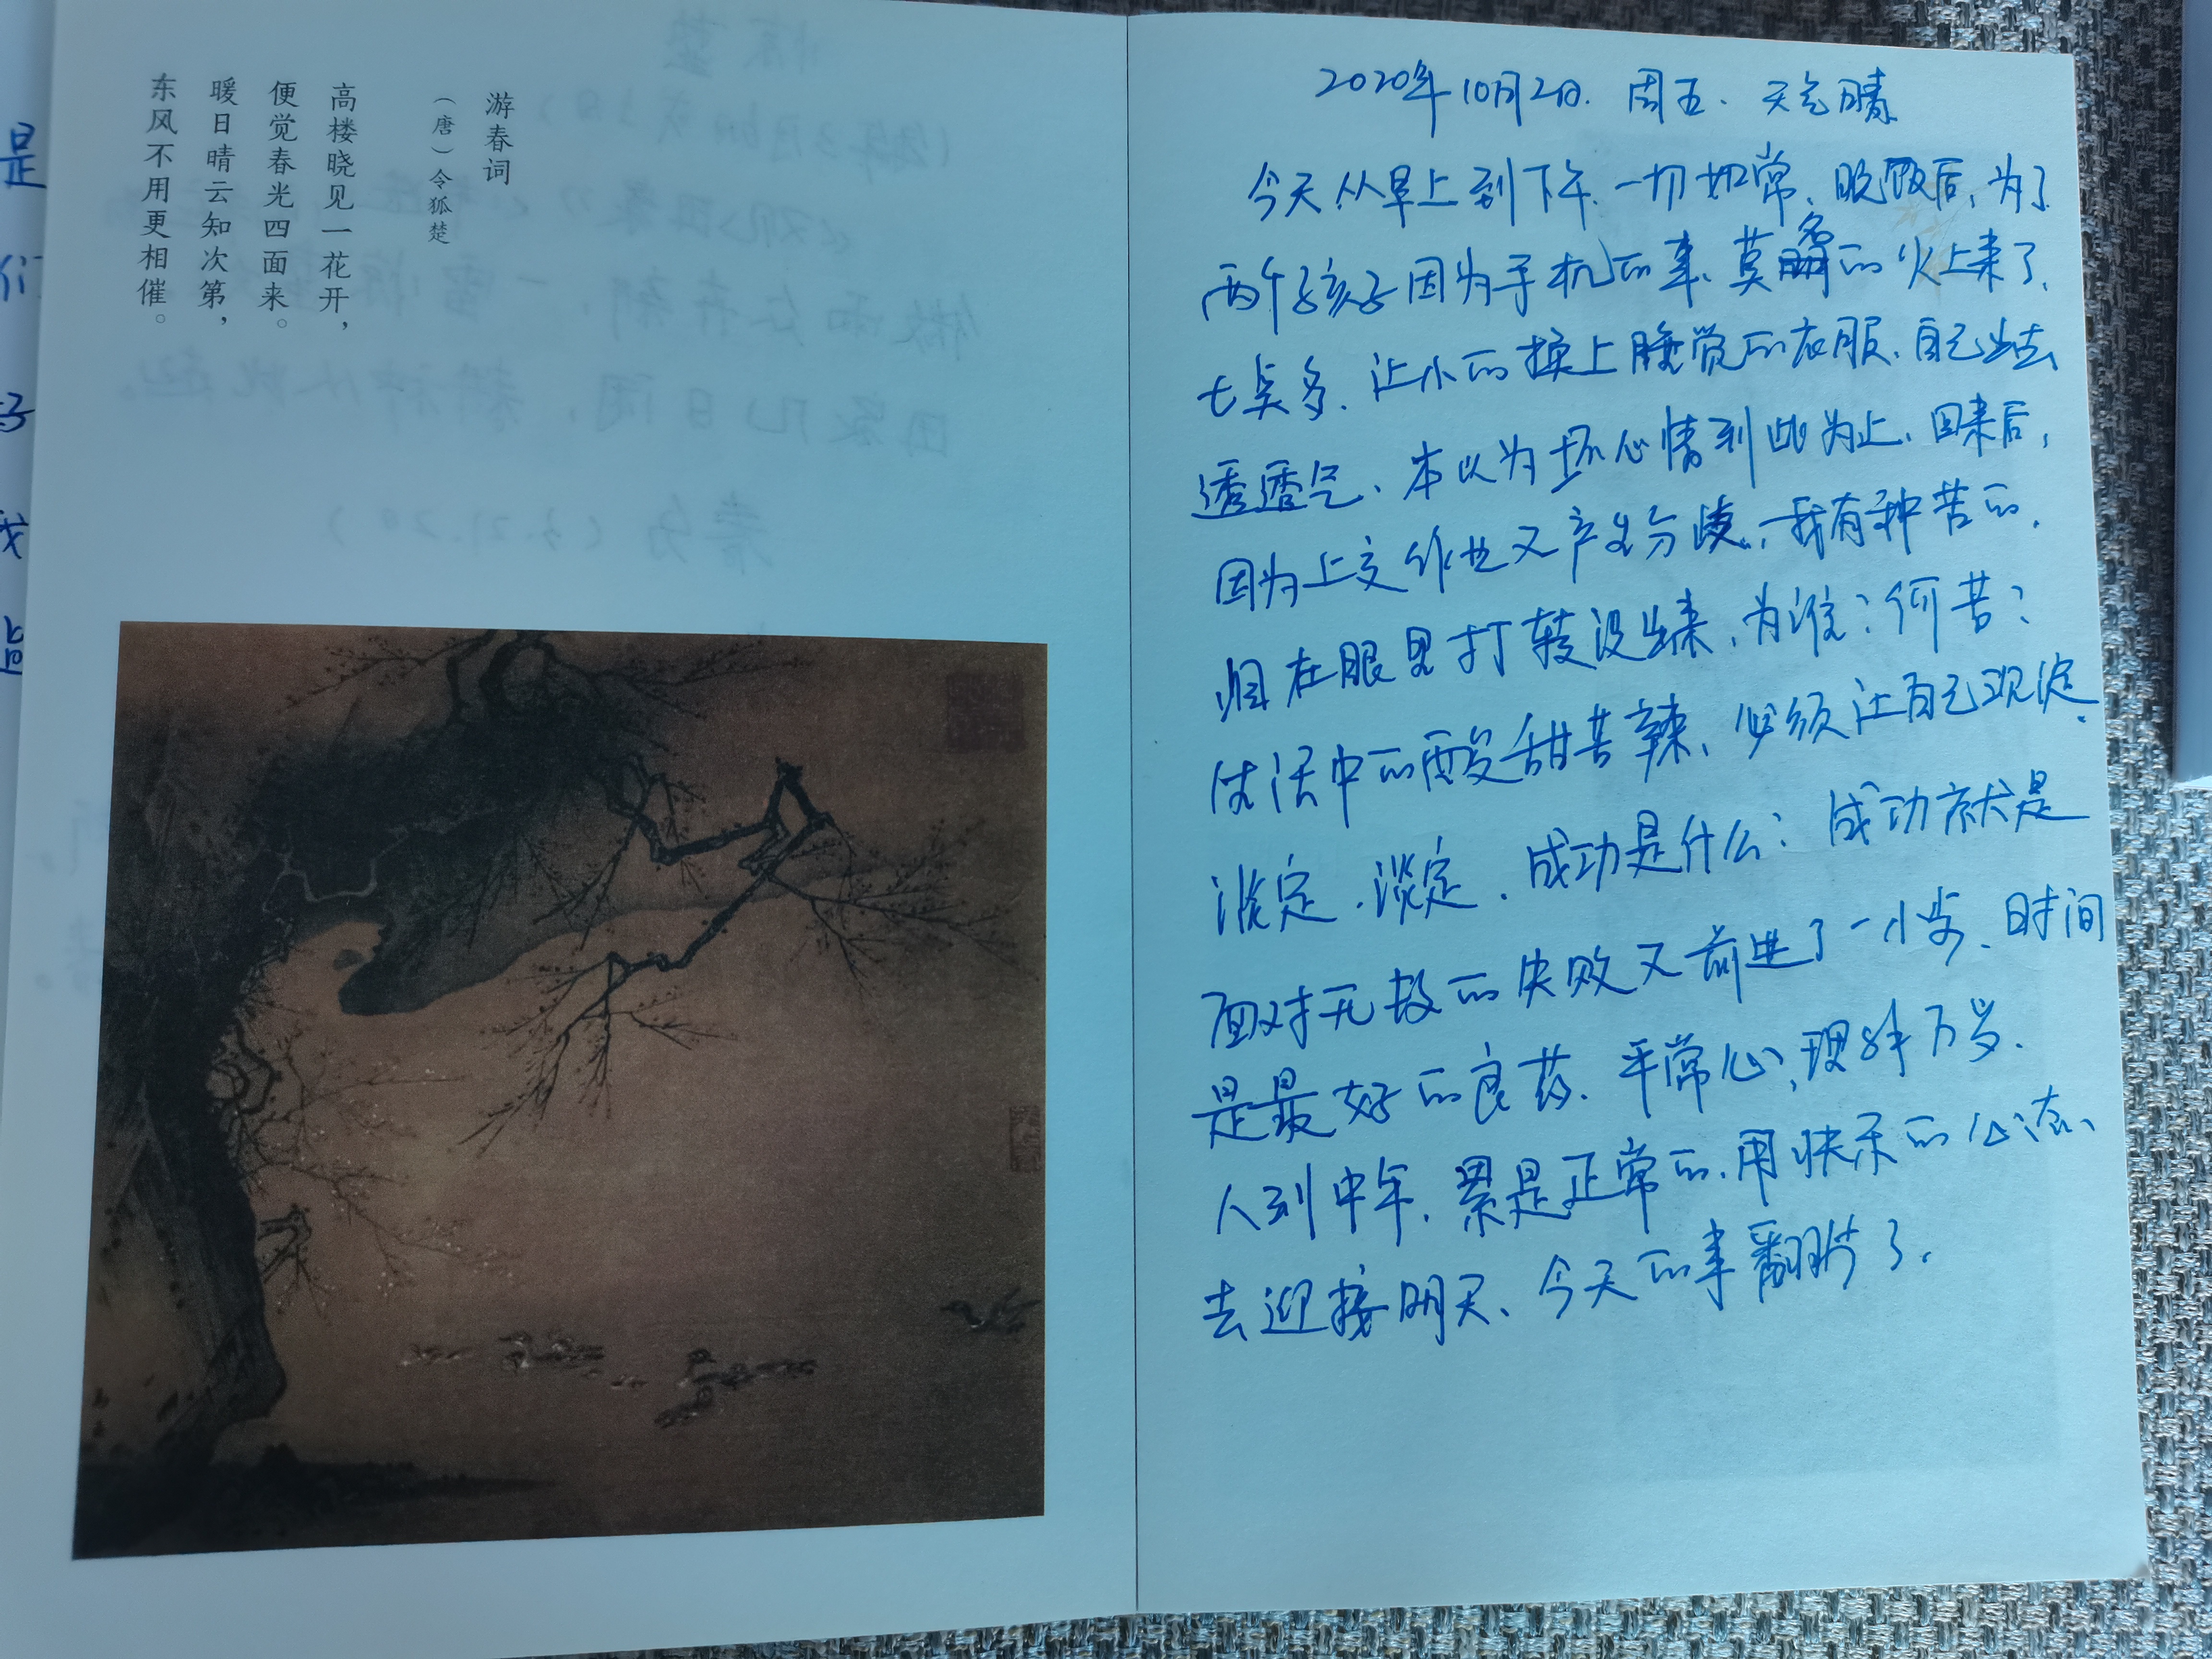 游春词
（唐）令狐楚
高楼晓见一花开，
便觉春光四面来。
暖日晴云知次第，
东风不用更相催。
2020年10月2日. 周五. 天气晴
今天从早上到下午.一切如常.晚饭后,为了
两个孩子因为手机的事、莫名的火上来了.
七点多.让小的换上睡觉的衣服.自己出去
透透气、本以为坏心情到此为止.回来后,
因为上交作业又产生分歧.我有种苦的.
泪在眼里打转没出来.为谁?何苦?
生活中的酸甜苦辣、必须让自己观淀.
淡定.淡定.成功是什么?成功就是
面对无数的失败又前进了一小步、时间
是最好的良药.平常心,理解万岁.
人到中年.累是正常的.用快乐的心态、
去迎接明天、今天的事翻片了.
是
们
子
我